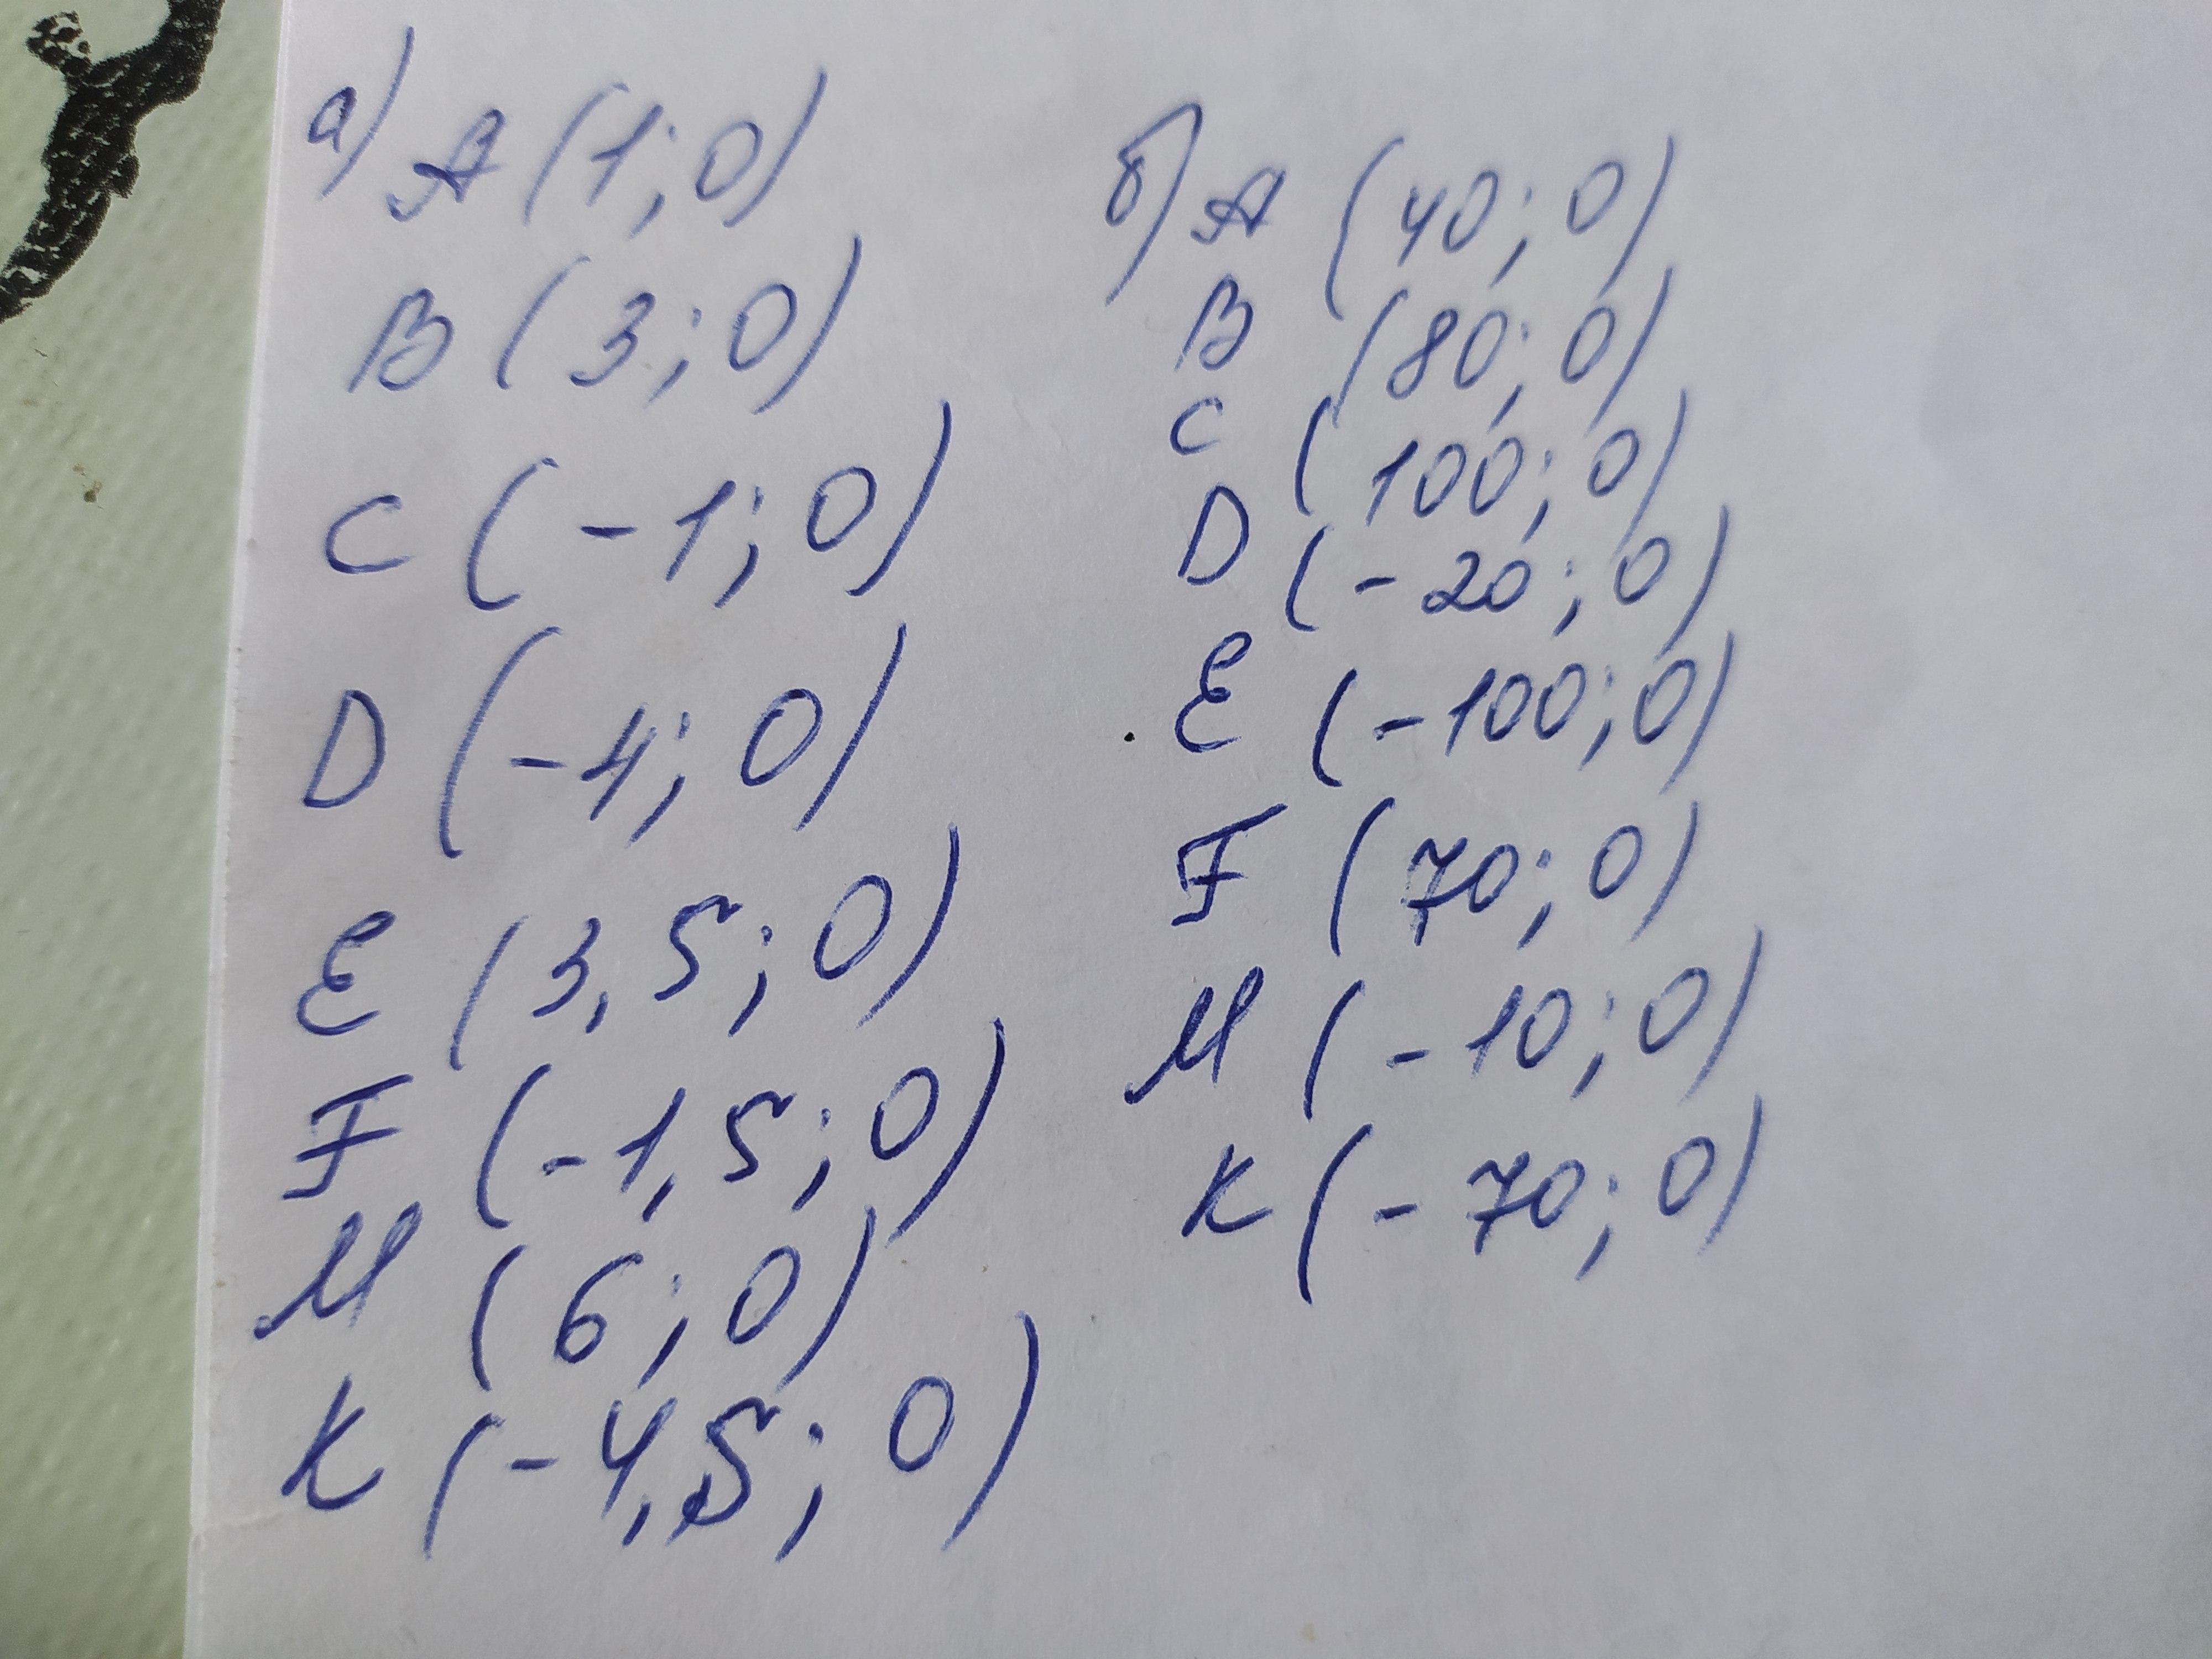 а) A (1; 0)
B (3; 0)
C (-1; 0)
D (-4; 0)
E (3,5; 0)
F (-1,5; 0)
M (6; 0)
K (-4,5; 0)
б) A (40; 0)
B (80; 0)
C (100; 0)
D (-20; 0)
E (-100; 0)
F (70; 0)
M (-10; 0)
K (-70; 0)